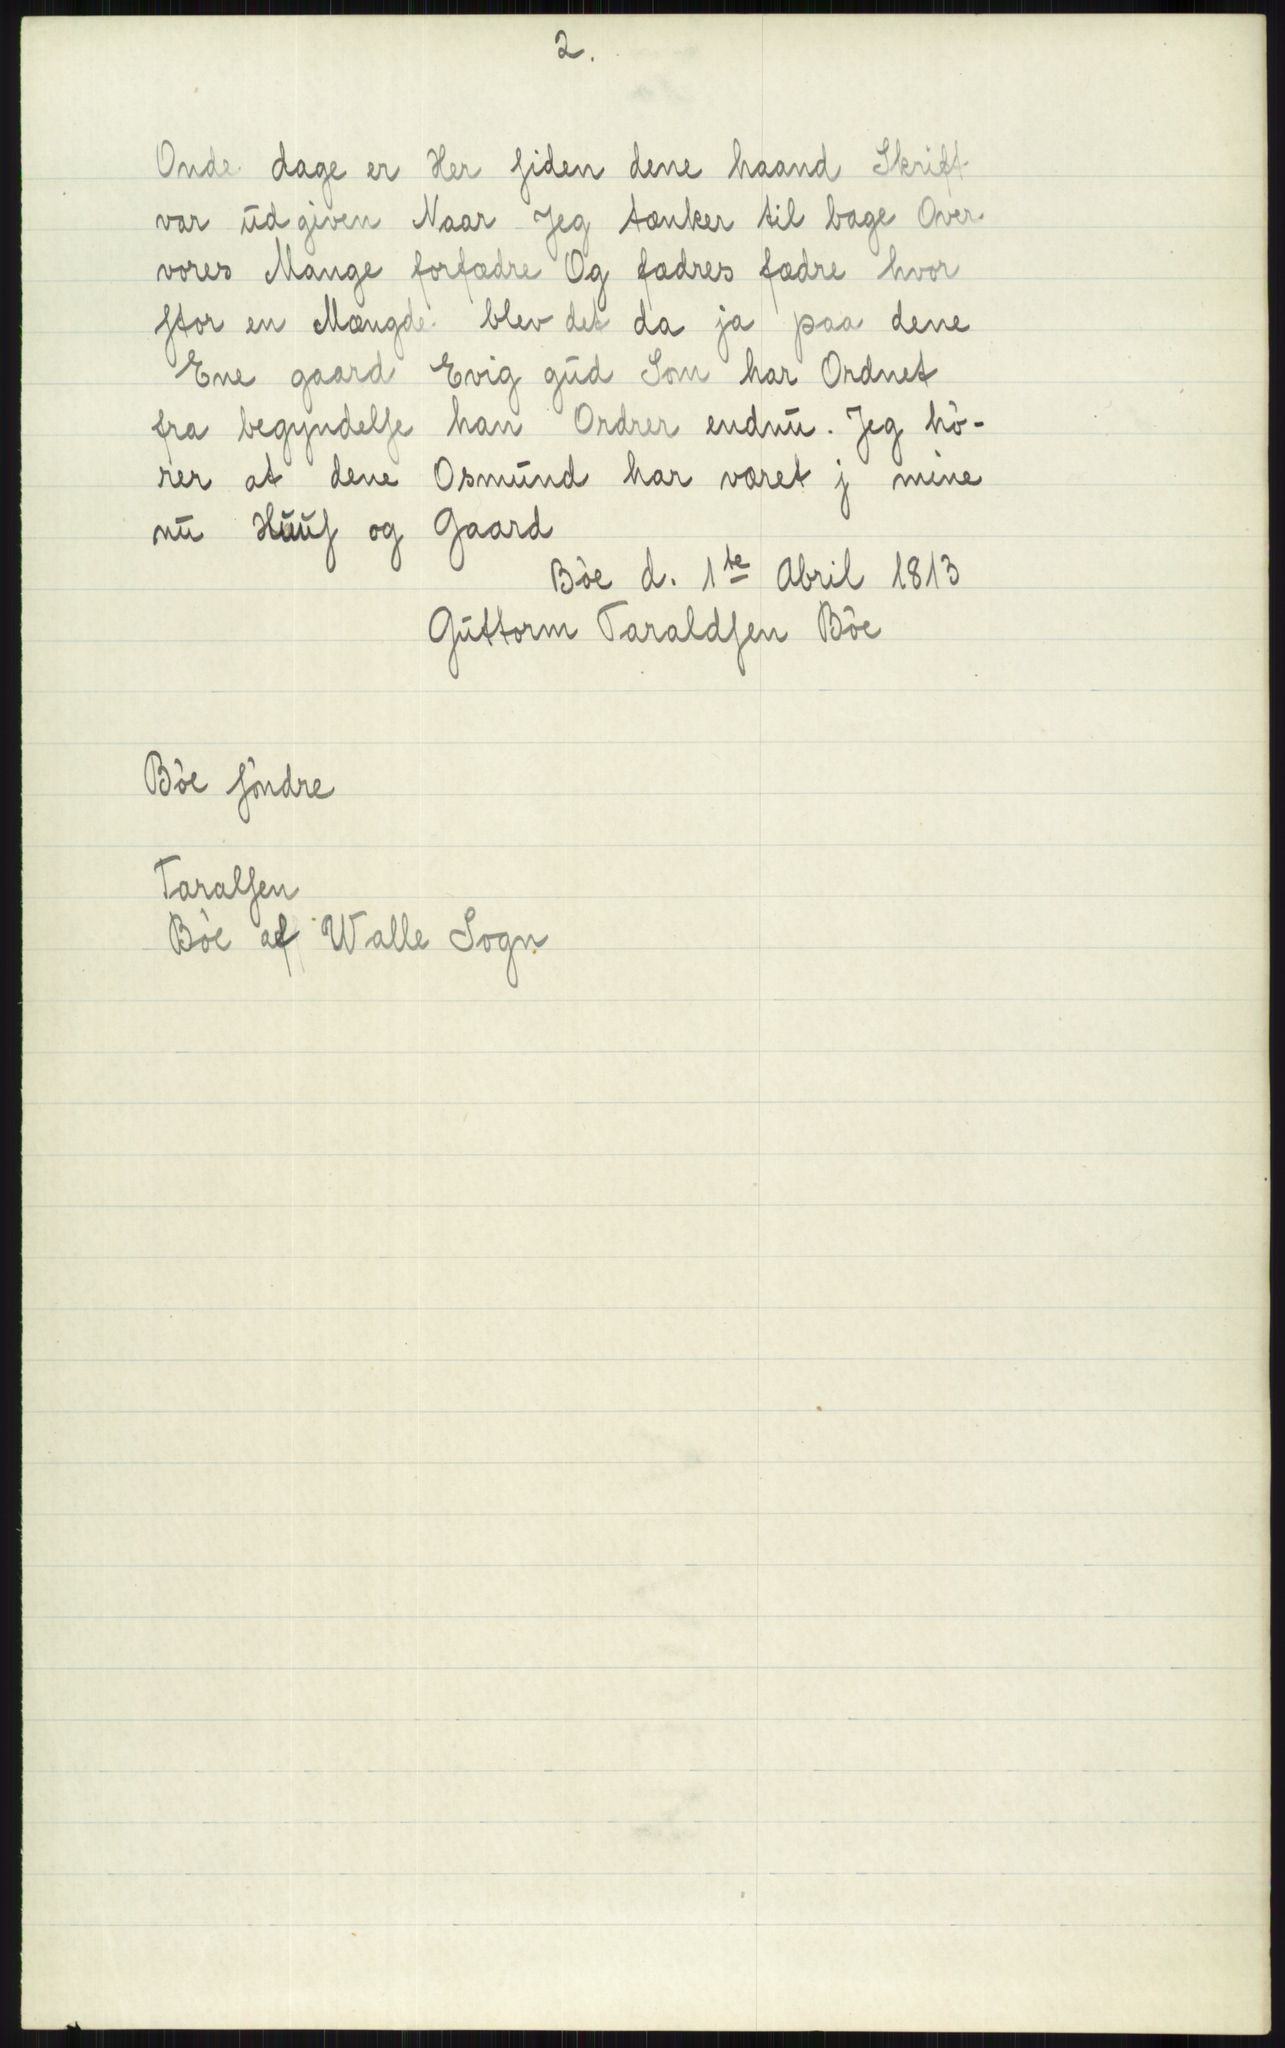 2.
Onde dage er Her siden dene haand Skrift
var ud given Naar Jeg tænker til bage Over
vores Mange forfædre Og fædres fædre hvor
stor en Mængde blev det da ja paa dene
Ene gaard Evig gud Som har Ordnet
fra begyndelse han Ordrer endnu. Jeg hö-
rer at dene Osmund har været j mine
nu Huus og Gaard
Böe d. 1te Abril 1813
Guttorm Taraldsen Böe
Böe söndre
Taralsen
Böe af Walle Sogn